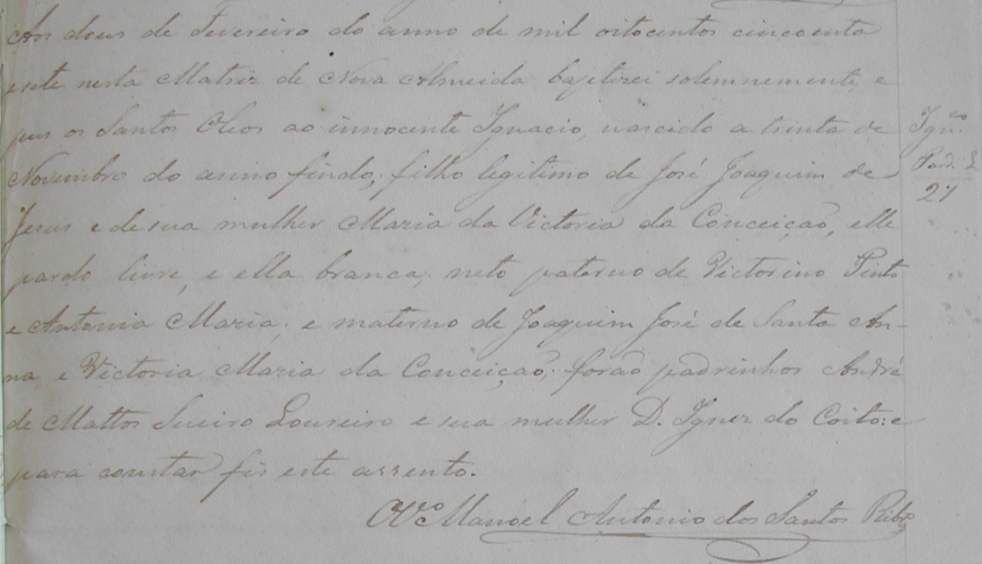 Aos dous de Fevereiro do anno de mil oitocentos cincoenta
e sete nesta Matriz de Nova Almeida baptizei solemnemente, e
pus os Santos Oleos ao innocente Ignacio, nascido a trinta de
Novembro do anno findo, filho legitimo de José Joaquim de
Jesus e de sua mulher Maria da Victoria da Conceição, elle
pardo livre, e ella branca; neto paterno de Victorino Pinto
e Antonia Maria; e materno de Joaquim José de Santa An-
na, e Victoria Maria da Conceição; forão padrinhos André
de Mattos Sueiro Loureiro e sua mulher D. Ignez do Coito: e
para constar fis este assento.
O Vº Manoel Antonio dos Santos Ribº
Ignco
Pard. L
21